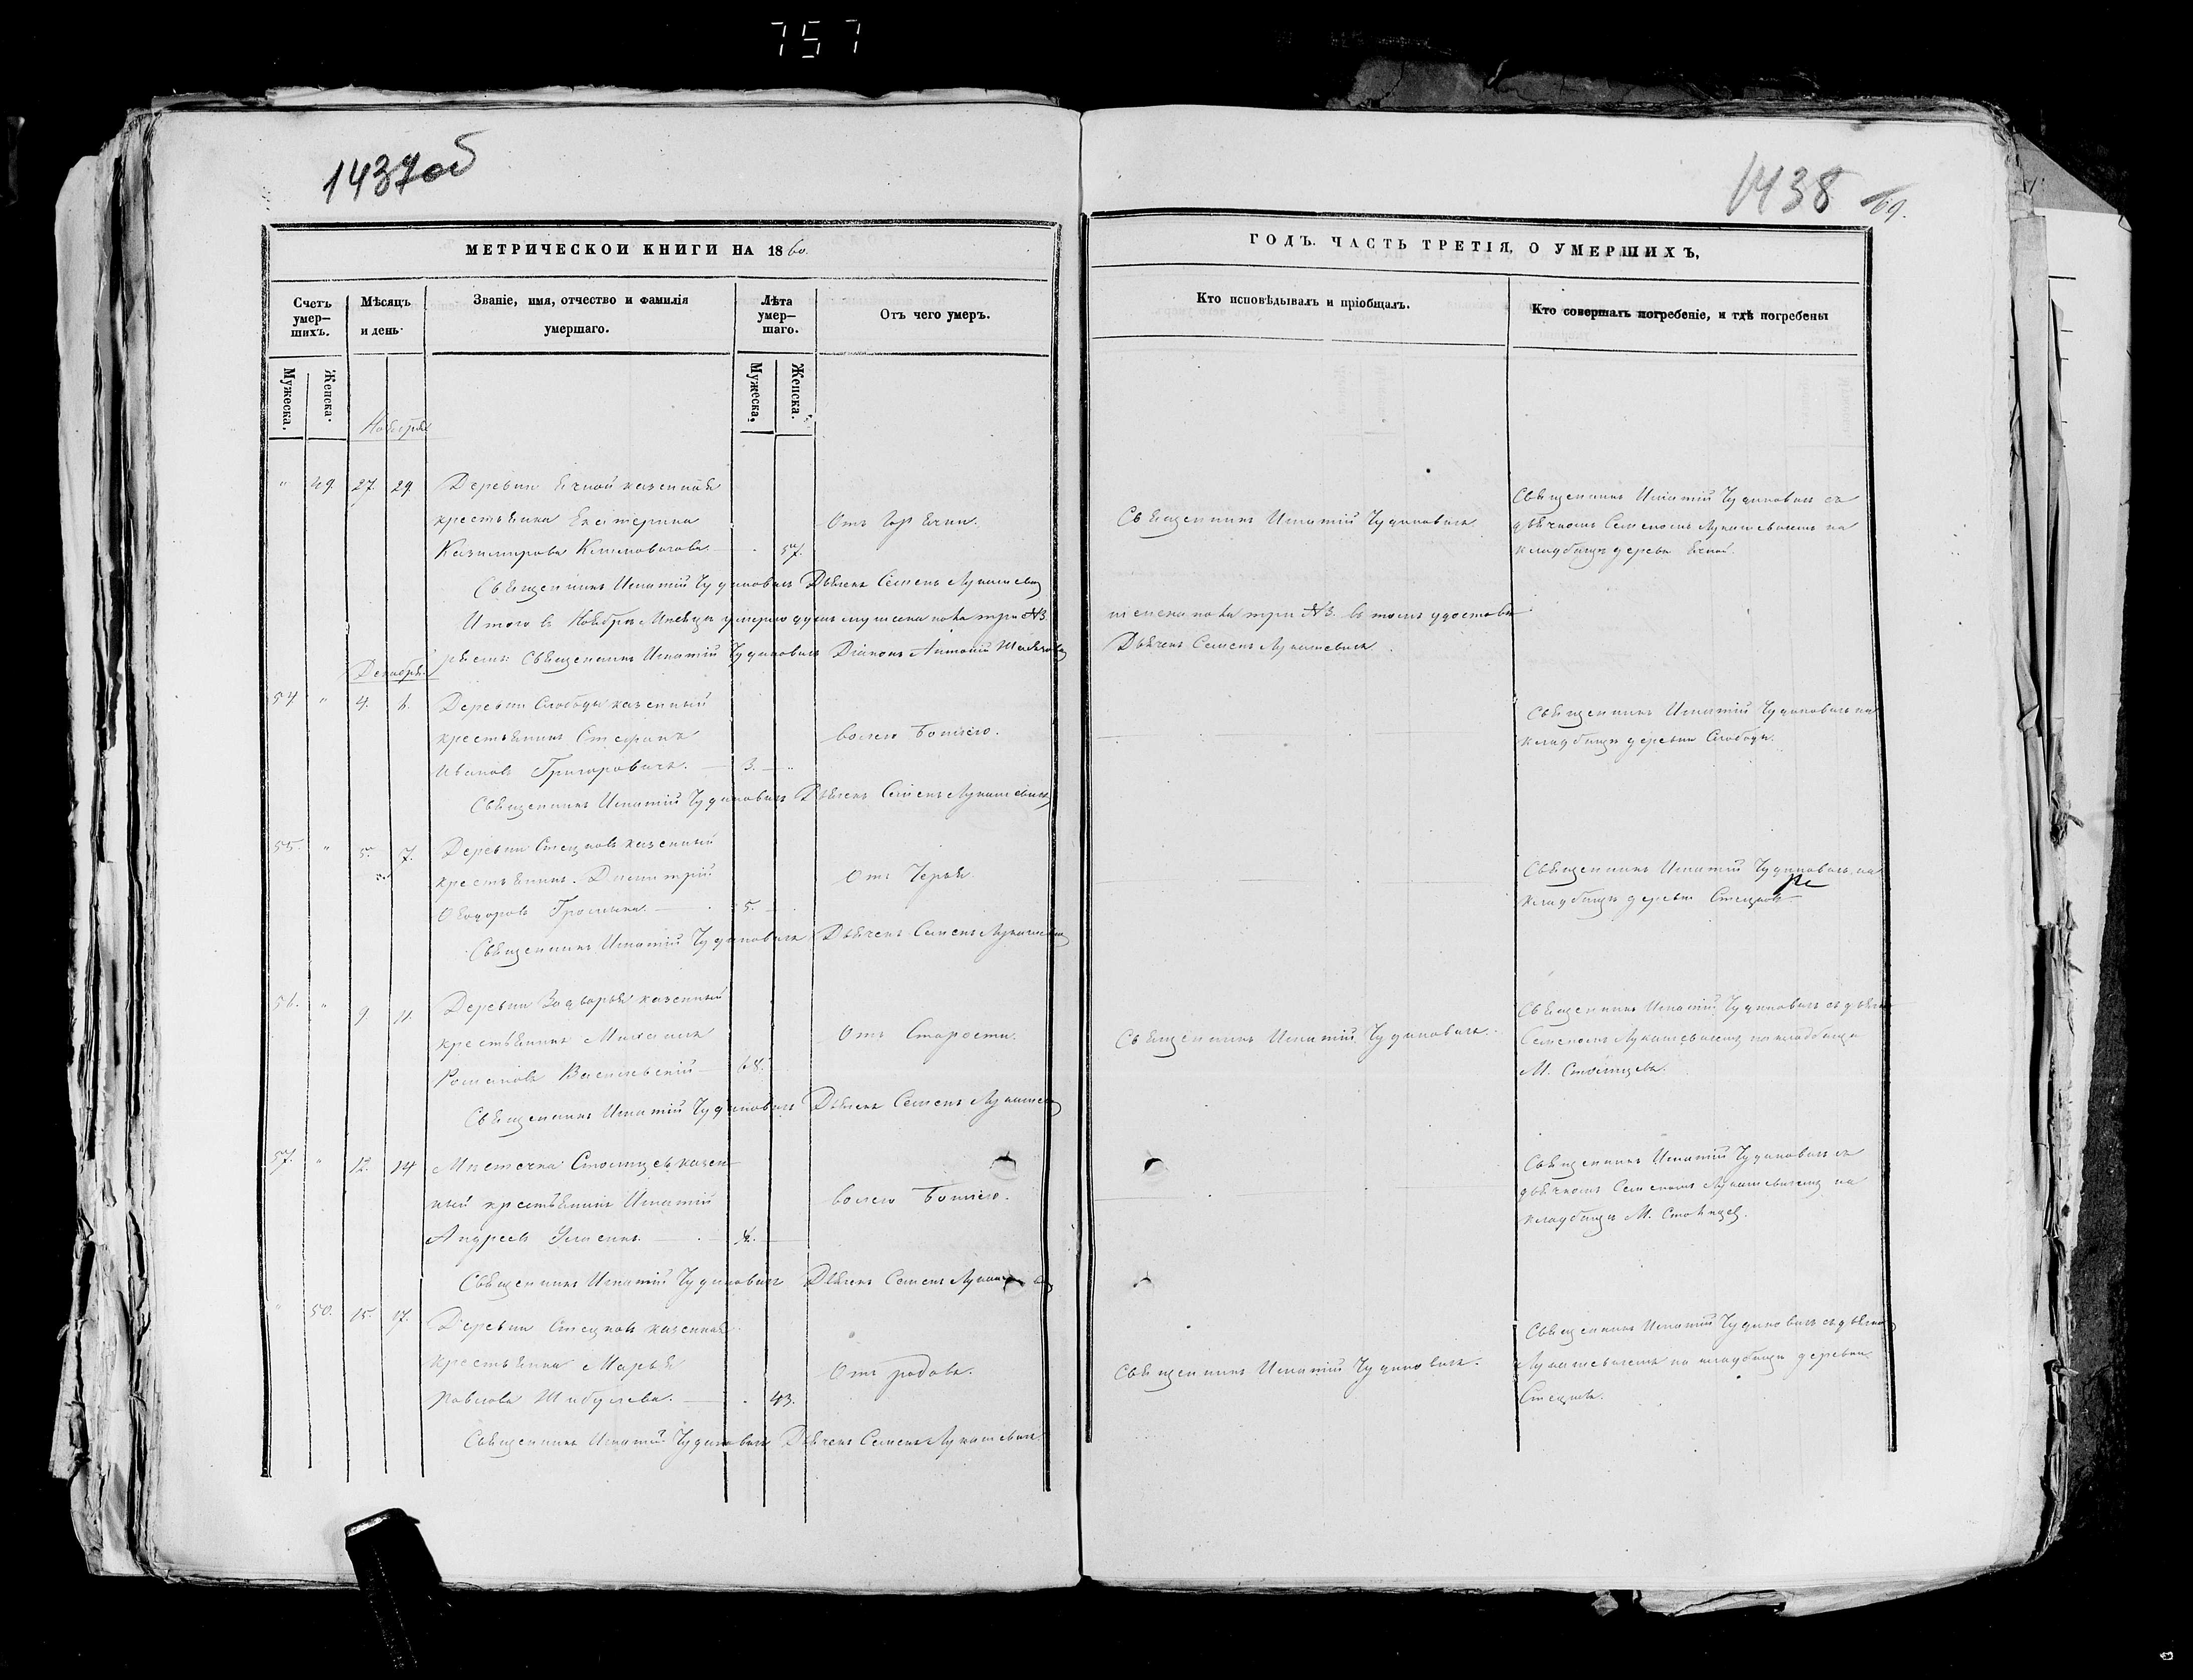 757
1437об
1438
69.
МЕТРИЧЕСКОИ КНИГИ НА 1860.
ГОДЪ. ЧАСТЬ ТРЕТІЯ, О УМЕРШИХЪ,
Счетъ умер-шихъ.
Мѣсяцъ и день.
Званіе, имя, отчество и фамилія умершаго.
Лѣта умер-шаго.
Отъ чего умеръ.
Кто исповѣдывалъ и пріобщалъ.
Кто совершалъ погребеніе, и гдѣ погребены
Мужеска.
Женска.
Мужеска,
Женска.
Ноября
" 49. 27. 29. Деревни Ячной казенная
крестьянка Екатерина
Казимирова Климовичова 57.
Отъ Горячки.
Священникъ Игнатій Чудиновичъ
Священникъ Игнатій Чудиновичъ съ
дьячкомъ Семеномъ Лукашевичемъ на
кладбищѣ деревни Ячной.
Священникъ Игнатій Чудиновичъ Дьячекъ Семенъ Лукашевичъ
Итого въ Ноябрѣ Мѣсяцѣ умерло душъ мужеска пола три №3.
женска пола три №3. въ томъ удостовѣ
ряемъ: Священникъ Игнатій Чудиновичъ Діаконъ Антоній
Дьячекъ Семенъ Лукашевичъ.
Декабря
54 " 4. 6. Деревни Слободы казенный
крестьянинъ Стефанъ
Ивановъ Григоровичъ. 3.
волею Божіею.
Священникъ Игнатій Чудиновичъ на
кладбищѣ деревни Слободы.
Священникъ Игнатій Чудиновичъ Дьячекъ Семенъ Лукашевичъ
55. " 5. 7. Деревни Стецковъ казенный
крестьянинъ Димитрій
Ѳеодоровъ Громыка 5.
Отъ Червей.
Священникъ Игнатій Чудиновичъ на
кладбищѣ деревни Стецковъ
Священникъ Игнатій Чудиновичъ Дьячекъ Семенъ Лукашевичъ
56. " 9 11. Деревни Задворья казенный
крестьянинъ Михаилъ
Романовъ Василевскій 68.
Отъ Старости.
Священникъ Игнатій Чудиновичъ.
Священникъ Игнатій Чудиновичъ съ дьячк
Семеномъ Лукашевичемъ на кладбищѣ
М. Столпцевъ.
Священникъ Игнатій Чудиновичъ Дьячекъ Семенъ Лукашев
57. " 12. 14 Мѣстечка Столпцевъ казен
ный крестьянинъ Игнатій
Андреевъ
волею Божіею.
Священникъ Игнатій Чудиновичъ съ
дьячкомъ Семеномъ Лукашевичемъ на
кладбищѣ М. Столпцевъ.
Священникъ Игнатій Чудиновичъ Дьячекъ Семенъ Лукашевичъ
" 50. 15. 17. Деревни Стецковъ казенная
крестьянка Марья
Павлова Шабулева. 43.
Отъ родовъ.
Священникъ Игнатій Чудиновичъ.
Священникъ Игнатій Чудиновичъ съ дьячко
Лукашевичемъ на кладбищѣ деревни
Стецковъ.
Священникъ Игнатій Чудиновичъ Дьячекъ Семенъ Лукашевичъ.